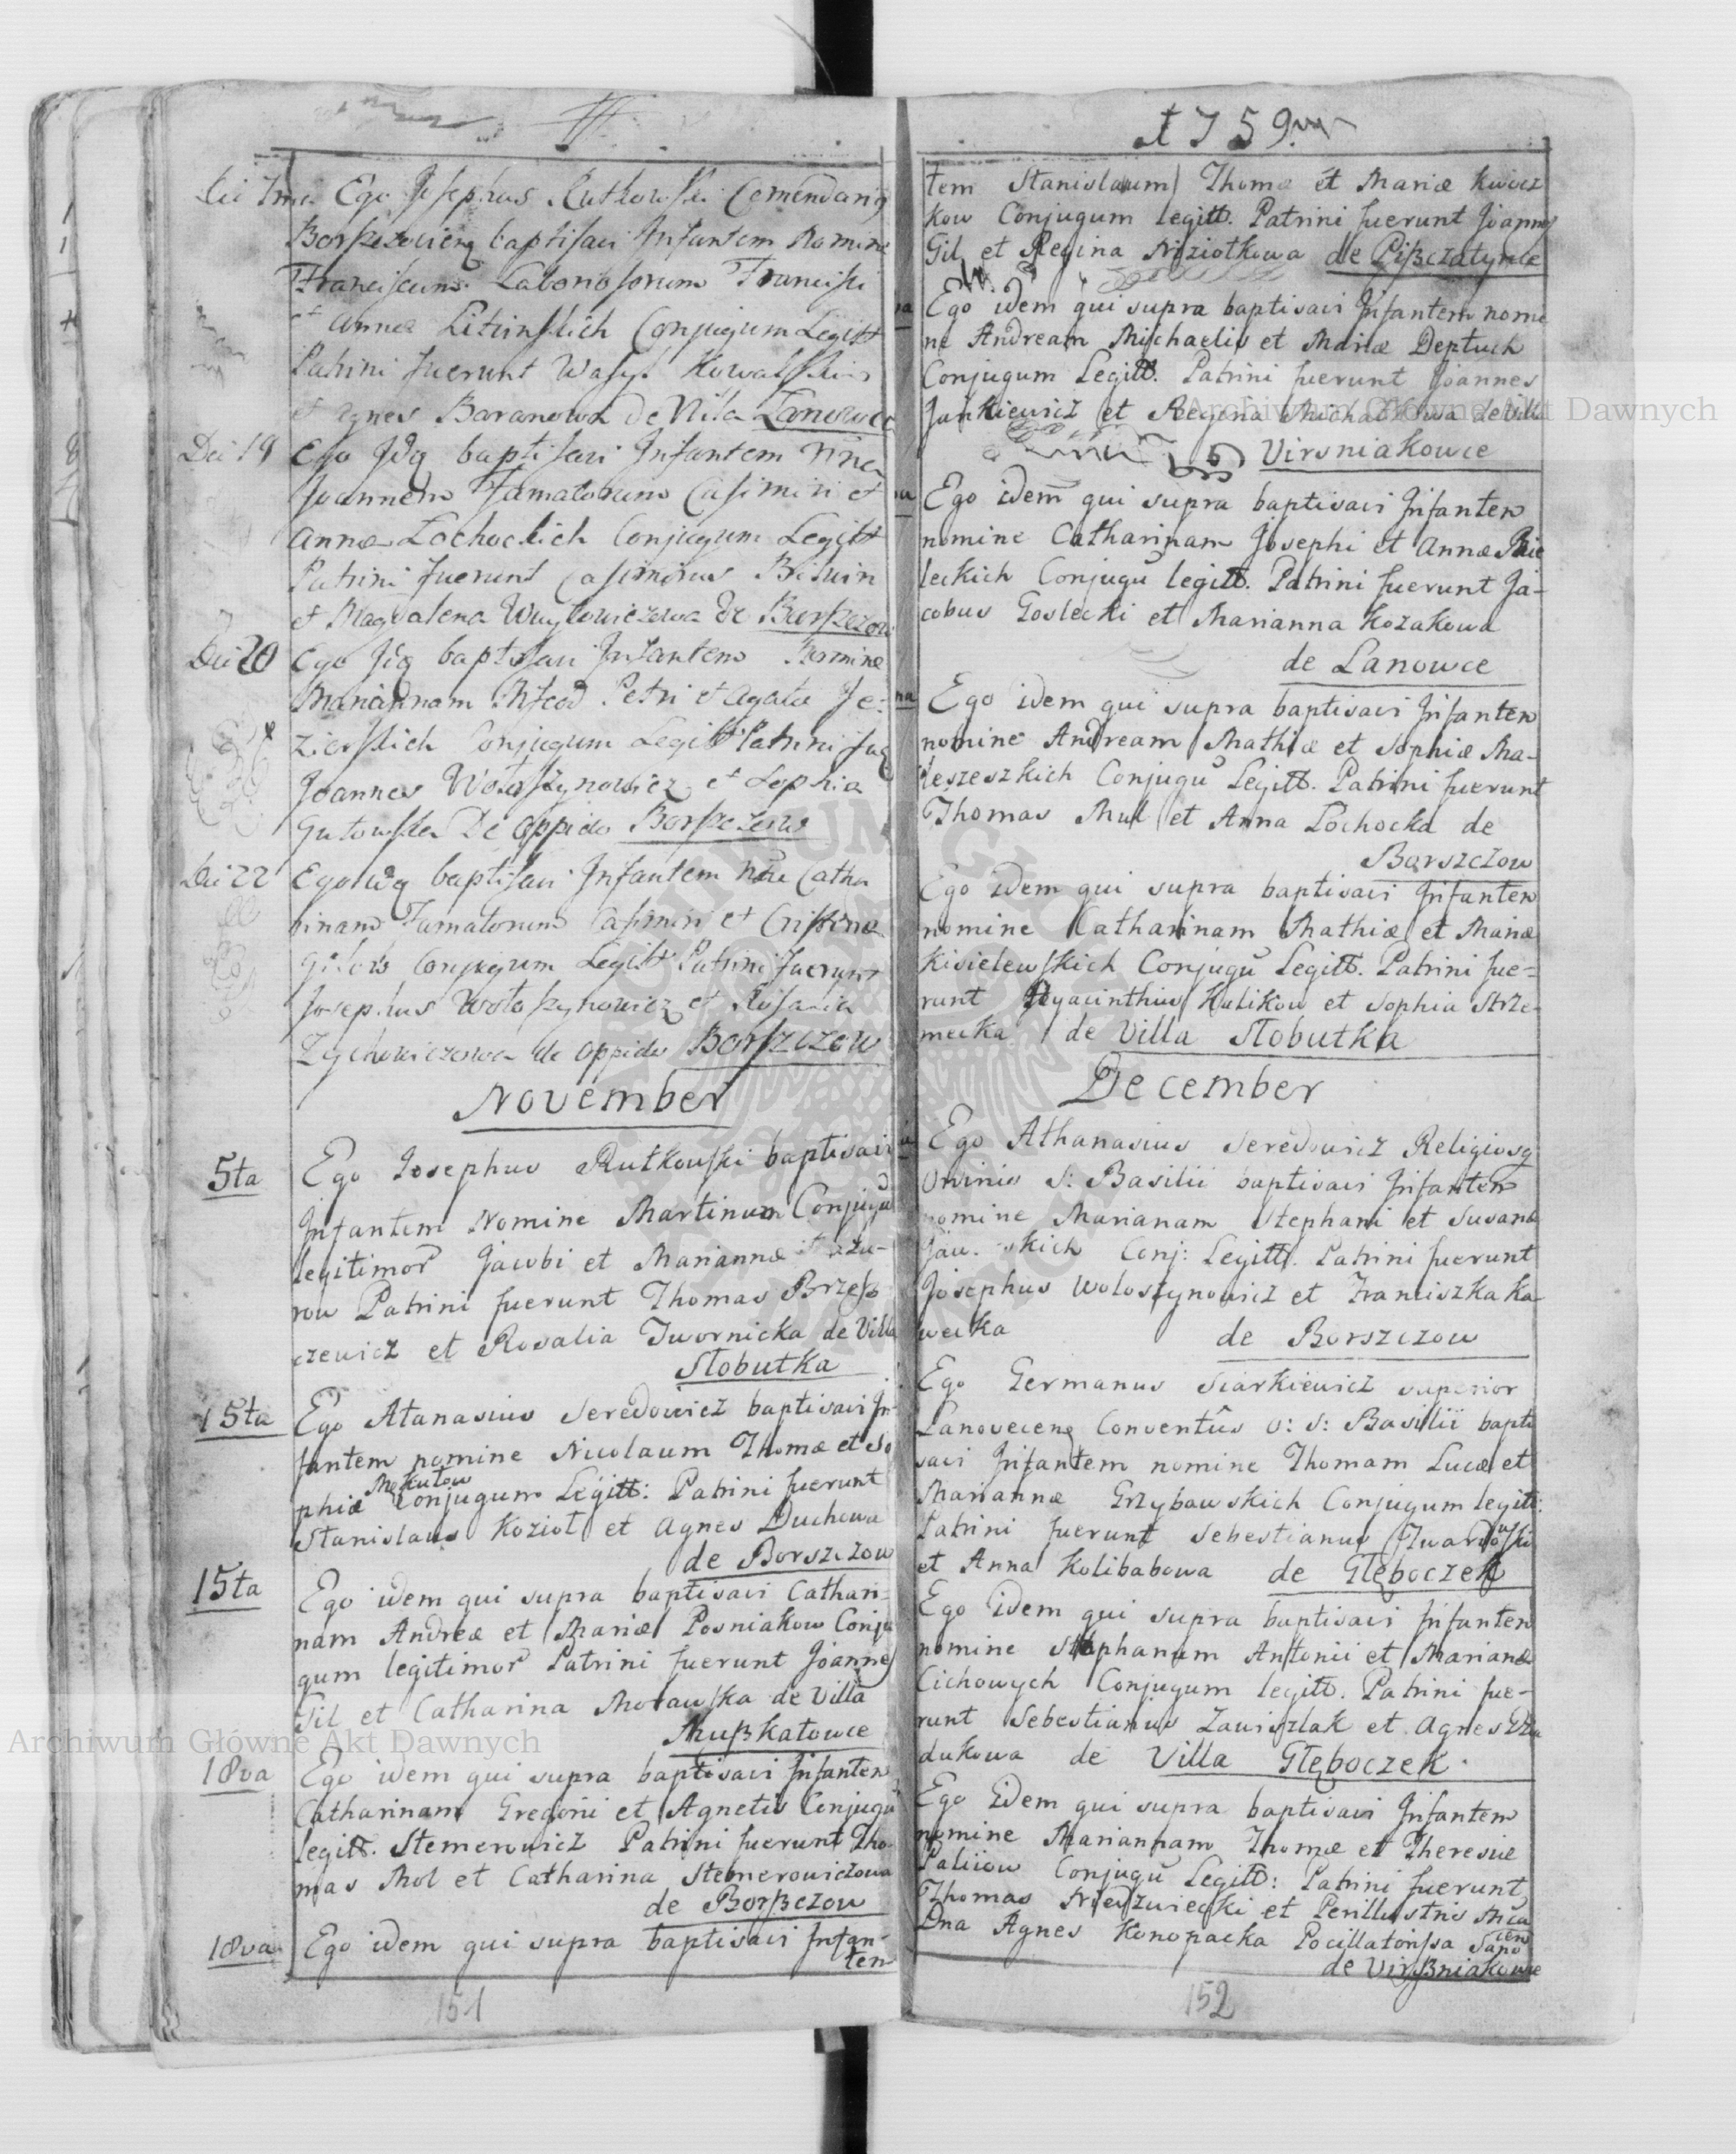 Ego Josephus Rutkowski Comendariq
Borszczoviens baptisavi Infantem Nomine
Franciscum Laboriosorum Francisci
et Annæ Litwinskich Conjugum Legitt
Patrini fuerunt Wasyl Kowalski
et Agnes Baranowa De Villa Lanowce
Die 19 Ego Idq baptisavi Infantem
Joannem Famatorum Casimiri et
Annæ Lochockich Conjugum Legitt
Patrini fuerunt Casimirus
et Magdalena Wuytowiczowa de Borszczow
Die 20 Ego Idq baptisavi Infantem Nomine
Mariannam Petri et Agatæ Je-
zierskich Conjugum Legitt Patrini
Joannes Wołoszynowicz et Sophia
Gutowska De Oppido Borszczow
Die 22 Ego Idq baptisavi Infantem Cathe
rinam Famatorum Casimiri et Cristinæ
Conjugum Legitt Patrini fuerunt
Josephus Wołoszynowicz et Rosalia
Zychowiczowa de Oppido Borszczow
November
5ta Ego Josephus Rutkowski baptisavi
Infantem Nomine Martinum Conjugu
legitimor Jacobi et Mariannæ
row Patrini fuerunt Thomas Brzesz
czewicz et Rosalia Twornicka de Villa
Słobutka
15ta Ego Atanasius Seredowicz baptisavi In-
fantem nomine Nicolaum Thomæ et So
phiæ Mokutow Conjugum Legitt: Patrini fuerunt
Stanislaus Kozioł et Agnes Duchowa
de Borszczow
15ta Ego idem qui supra baptisavi Cathari-
nam Andreæ et Mariæ Posniakow Conju
gum legitimor Patrini fuerunt Joannes
Gil et Catharina Morawska de Villa
Mußkatowce
18va Ego idem qui supra baptisavi Infantem
Catharinam Gregorii et Agnetis Conjugu
legitt. Stemerowicz Patrini fuerunt Tho-
mas Mol et Catharina Stemerowiczowa
de Borßczow
18va Ego idem qui supra baptisavi Infan-
tem
151
1759
tem Stanislaum Thomæ et Mariæ Kwicz
kow Conjugum legitt. Patrini fuerunt Joannes
Gil et Regina Niziotkowa de Pißczatynce
Ego idem qui supra baptisavi Infantem nomi
ne Andream Michaelis et Mariæ Deptuch
Conjugum Legitt. Patrini fuerunt Joannes
Jankiewicz et Regina Michałkowa de Villa
Virsniakowce
Ego idem qui supra baptisavi Infantem
nomine Catharinam Josephi et Annæ Bie
leckich Conjugu legitt. Patrini fuerunt Ja-
cobus Goslecki et Marianna Kozakowa
de Lanowce
Ego idem qui supra baptisavi Infantem
nomine Andream Mathiæ et Sophiæ Ma-
leszeszkich Conjugu Legitt. Patrini fuerunt
Thomas Mul et Anna Lochocka de
Borszczow
Ego idem qui supra baptisavi Infantem
nomine Catharinam Mathiæ et Mariæ
Kisielewskich Conjugu Legitt. Patrini fue-
runt Hyacinthus Kulikow et Sophia Strze-
mecka de Villa Słobutka
December
Ego Athanasius Seredowicz Religiosq
Ordinis S: Basilii baptisavi Infantem
nomine Marianam Stephani et Susanæ
Conj: Legitt. Patrini fuerunt
Josephus Wołoszynowicz et Franciszka Ka
wecka de Borszczow
Ego Germanus Siarkiewicz superior
Lanovecens Conventûs O: S: Basilii bapti
savi Infantem nomine Thomam Lucæ et
Mariannæ Grzybawskich Conjugum legitt:
Patrini fuerunt Sebestianus Twardowski
et Anna Kolibabowa de Głęboczek
Ego idem qui supra baptisavi Infantem
nomine Stephanum Antonii et Marianæ
Cichowych Conjugum legitt. Patrini fue-
runt Sebestianus Zawiszlak et Agnes
dukowa de Villa Głęboczek.
Ego idem qui supra baptisavi Infantem
nomine Mariannam Thomæ et Theresiæ
Paliiow Conjugu Legitt: Patrini fuerunt
Thomas Niedzwiecki et Perillustris
Dna Agnes Konopacka Pocillatorissa
de Virßniakowce
152
Archiwum Główne Akt Dawnych
Archiwum Główne Akt Dawnych